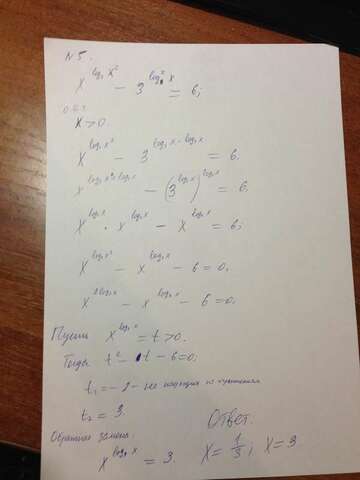 N 5.
x^{log₃ x²} - 3^{log₃² x} = 6;
О.Д.З.
x > 0.
x^{log₃ x²} - 3^{log₃ x · log₃ x} = 6.
x^{log₃ x + log₃ x} - (3^{log₃ x})^{log₃ x} = 6.
x^{log₃ x} · x^{log₃ x} - x^{log₃ x} = 6;
x^{log₃ x²} - x^{log₃ x} - 6 = 0.
x^{2log₃ x} - x^{log₃ x} - 6 = 0.
Пусть x^{log₃ x} = t > 0.
Тогда t² - t - 6 = 0.
t₁ = -2 - не
t₂ = 3.
Обратная замена.
x^{log₃ x} = 3.
Ответ.
x = 1/3; x = 3